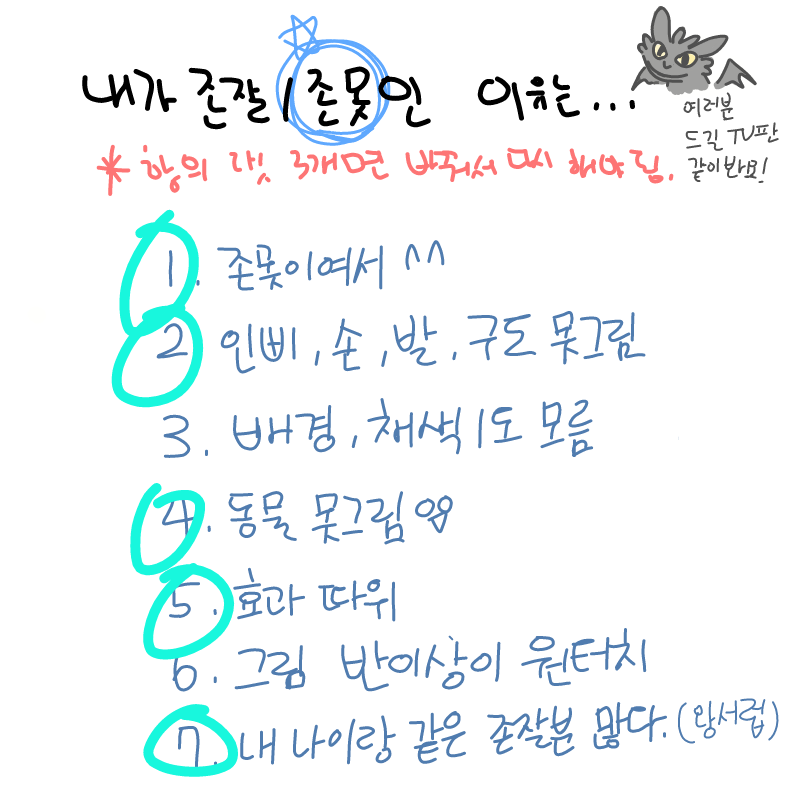 내가 존잘/존못인 이유는...
여러분
드길 TV판
같이봐요!
* 항의 댓 3개면 바꿔서 다시 해야 됨.
1. 존못이여서 ^^
2 인삐, 손, 발, 구도 못그림
3. 배경, 채색 1도 모름
4. 동물 못그림
5. 효과 따위
6. 그림 반이상이 원터치
7. 내 나이랑 같은 존잘분 많다. (왕서럽)